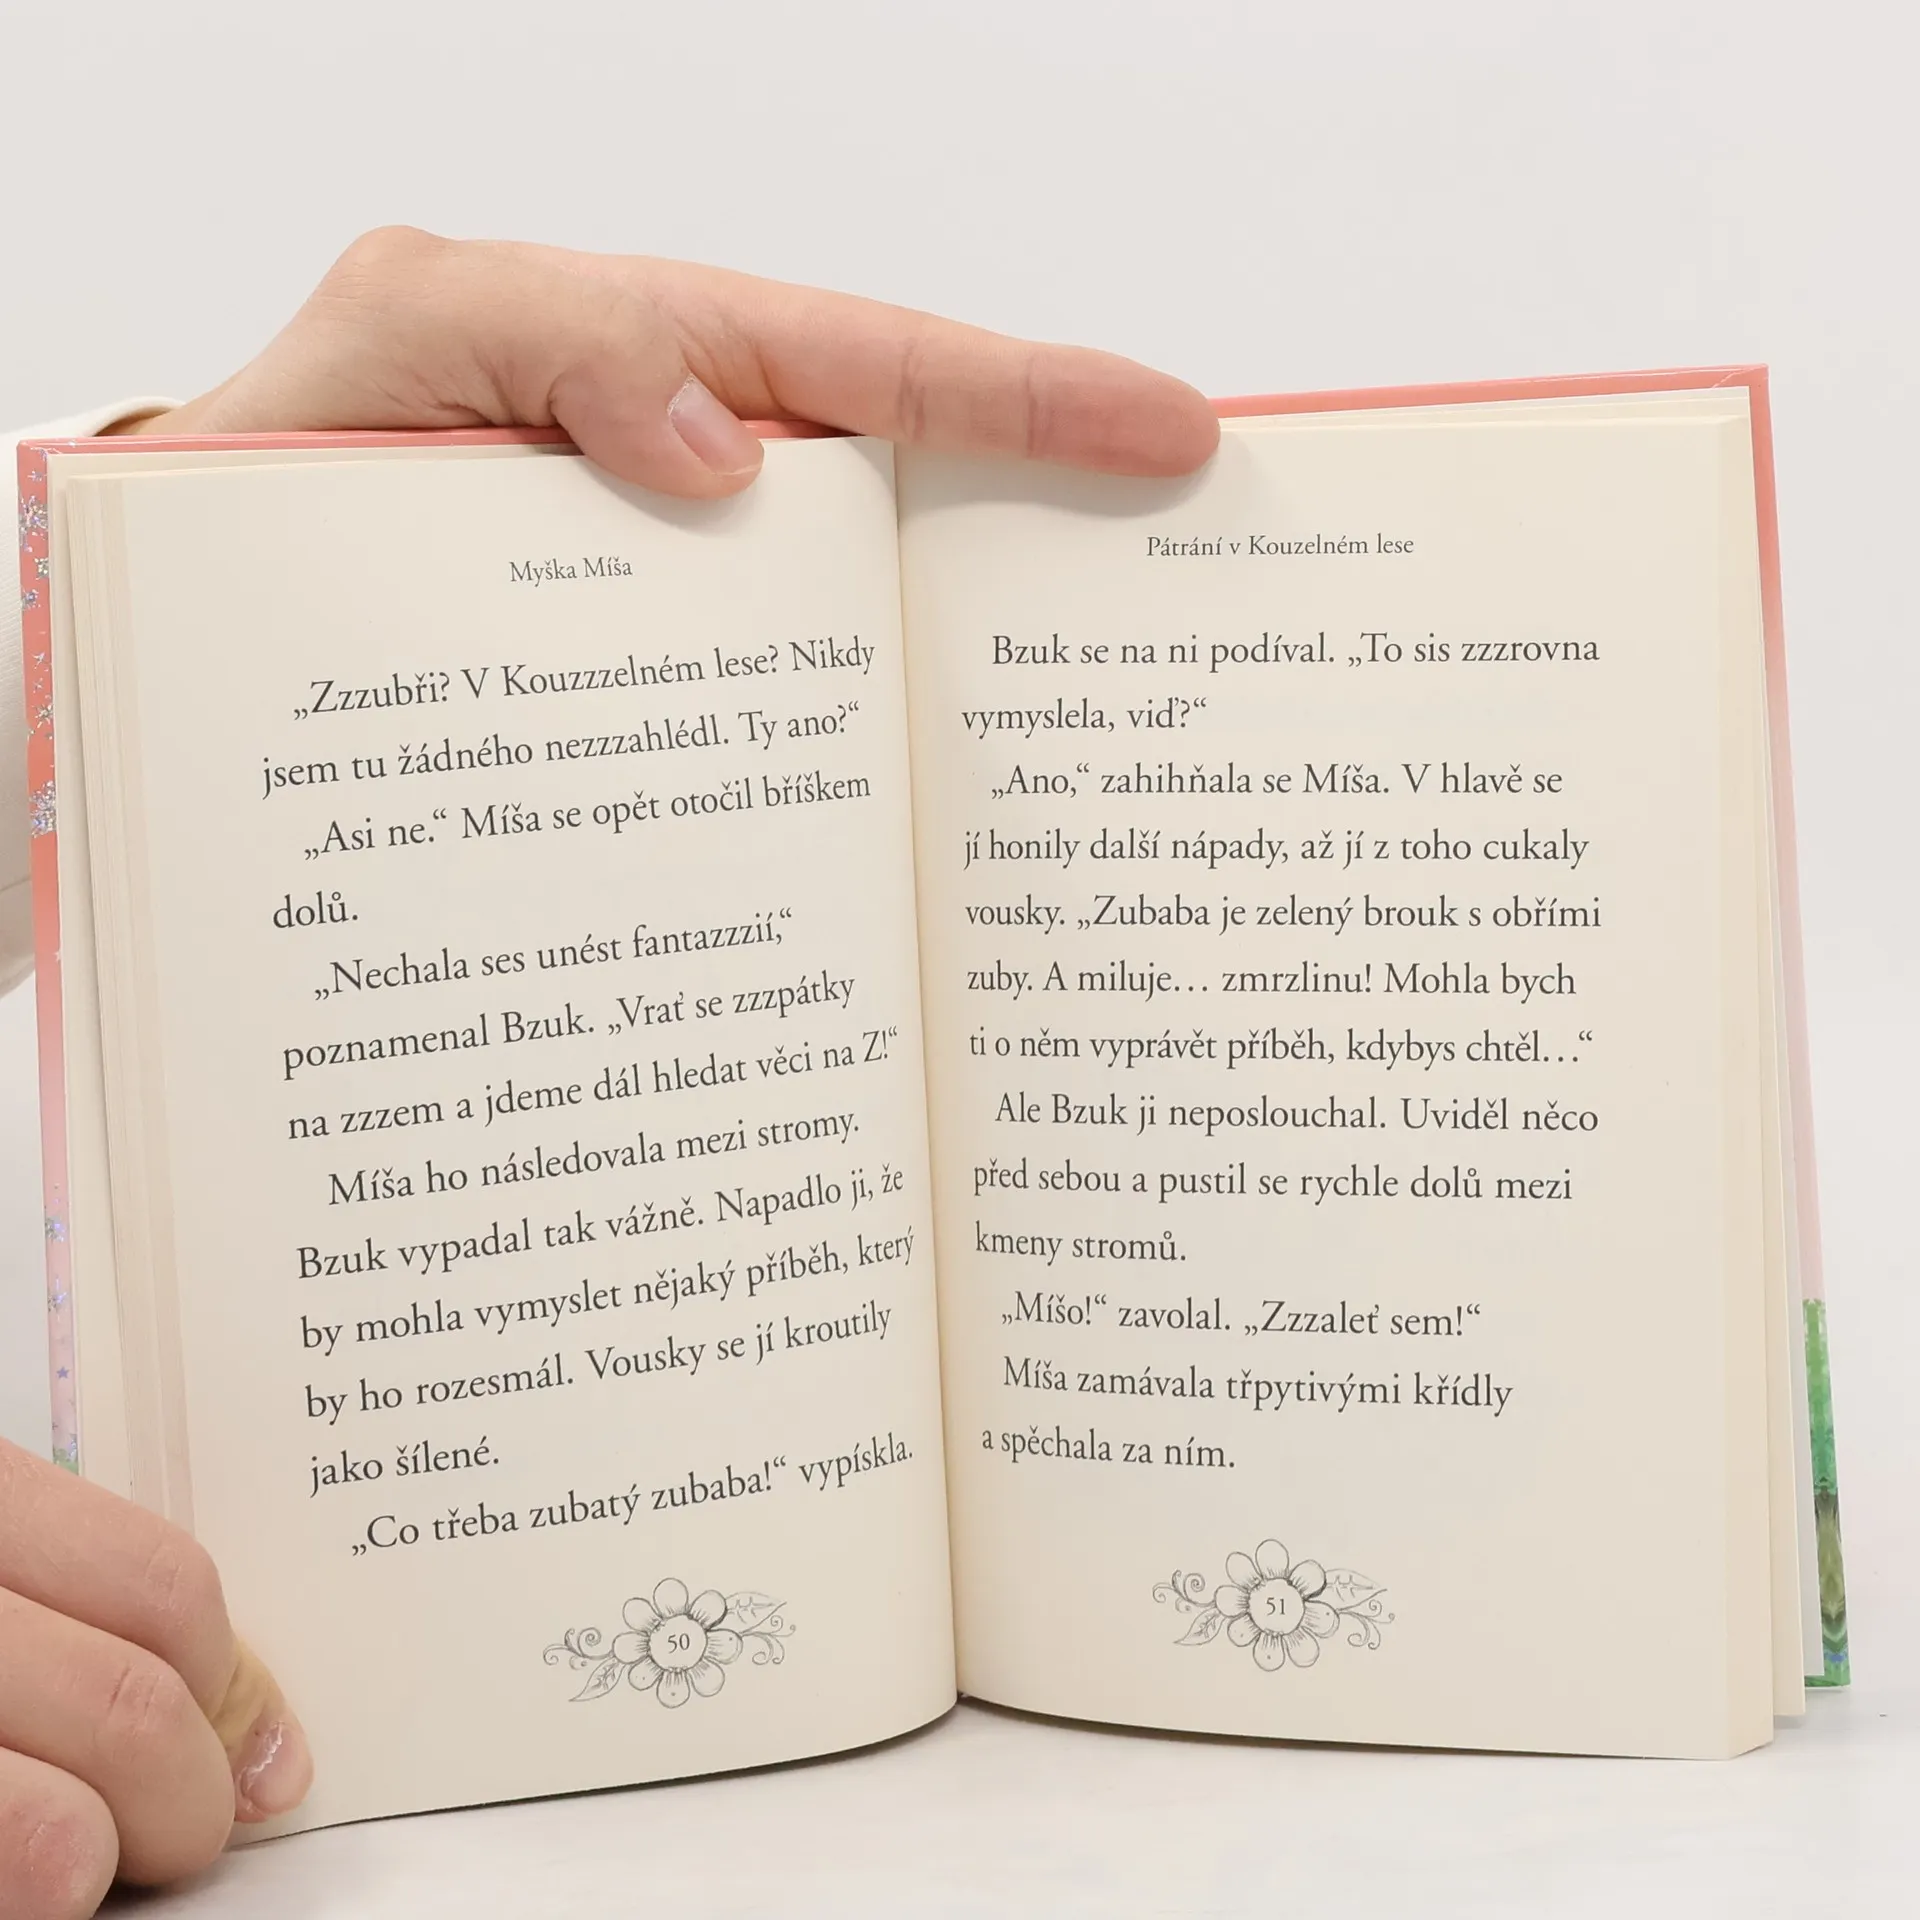 Myška Míša
„Zzzubři? V Kouzzzelném lese? Nikdy
jsem tu žádného nezzzahlédl. Ty ano?“
„Asi ne.“ Míša se opět otočil bříškem
dolů.
„Nechala ses unést fantazzzií,“
poznamenal Bzuk. „Vrať se zzzpátky
na zzzem a jdeme dál hledat věci na Z!“
Míša ho následovala mezi stromy.
Bzuk vypadal tak vážně. Napadlo ji, že
by mohla vymyslet nějaký příběh, který
by ho rozesmál. Vousky se jí kroutily
jako šílené.
„Co třeba zubatý zubaba!“ vypískla.
50
Pátrání v Kouzelném lese
Bzuk se na ni podíval. „To sis zzzrovna
vymyslela, viď?“
„Ano,“ zahihňala se Míša. V hlavě se
jí honily další nápady, až jí z toho cukaly
vousky. „Zubaba je zelený brouk s obřími
zuby. A miluje… zmrzlinu! Mohla bych
ti o něm vyprávět příběh, kdybys chtěl…“
Ale Bzuk ji neposlouchal. Uviděl něco
před sebou a pustil se rychle dolů mezi
kmeny stromů.
„Míšo!“ zavolal. „Zzzaleť sem!“
Míša zamávala třpytivými křídly
a spěchala za ním.
51